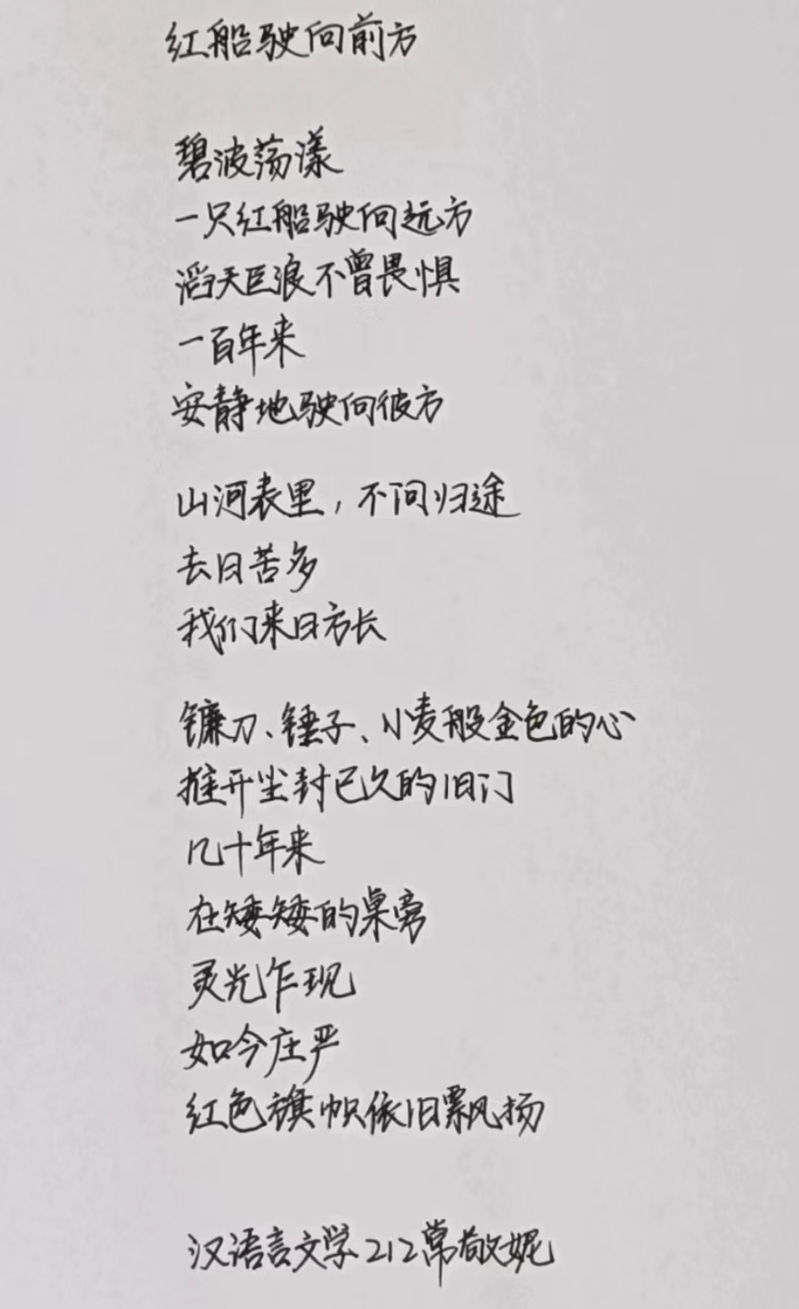 红船驶向前方
碧波荡漾
一只红船驶向远方
滔天巨浪不曾畏惧
一百年来
安静地驶向彼方
山河表里，不问归途
去日苦多
我们来日方长
镰刀、锤子、小麦般金色的心
推开尘封已久的旧门
几十年来
在矮矮的桌旁
灵光乍现
如今庄严
红色旗帜依旧飘扬
汉语言文学212常敬妮